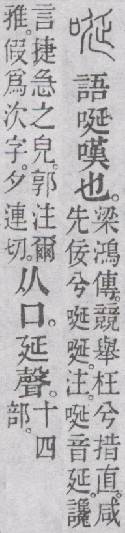 唌
語唌嘆也。梁鴻傳。競舉枉兮措直。咸
先佞兮唌唌。注。唌音延。讒
言捷急之皃。郭注爾
雅。假爲次字。夕連切。从口。延聲。十四
部。